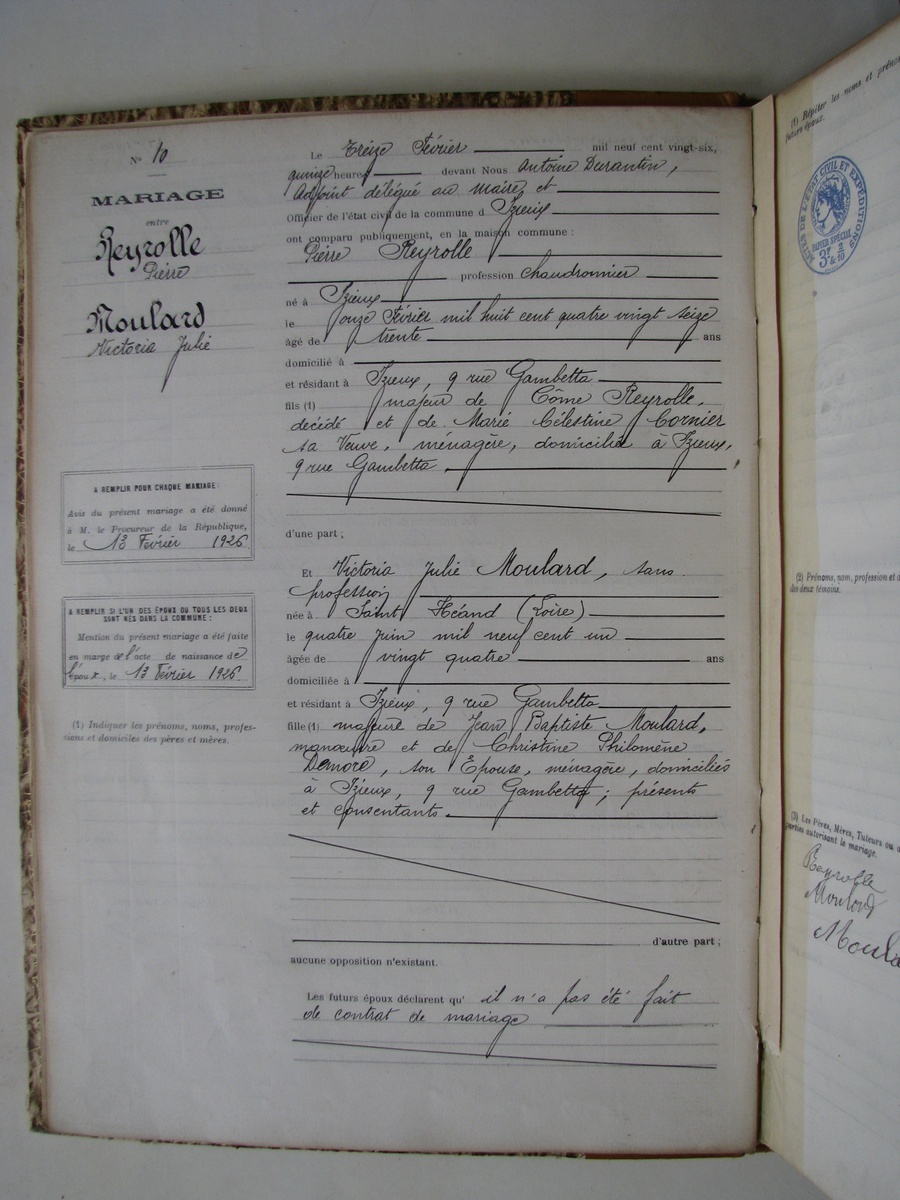 N° 10
MARIAGE
entre
Reyrolle
Pierre
Moulard
Victoria Julie
A REMPLIR POUR CHAQUE MARIAGE
Avis du présent mariage a été donné
à M. le Procureur de la République,
le 13 Février 1926
A REMPLIR SI L'UN DES ÉPOUX OU TOUS LES DEUX
SONT NÉS DANS LA COMMUNE :
Mention du présent mariage a été faite
en marge de l'acte de naissance de
l'époux, le 13 Février 1926
(1) Indiquer les prénoms, noms, profes-
sions et domiciles des pères et mères.
Le Treize Février mil neuf cent vingt-six,
quinze heures devant Nous Antoine Durantin,
Adjoint délégué au Maire, et
Officier de l'état civil de la commune d Izieux
ont comparu publiquement, en la maison commune :
Pierre Reyrolle
profession Chaudronnier
né à Izieux
le onze Février mil huit cent quatre vingt seize
âgé de trente ans
domicilié à
et résidant à Izieux, 9 rue Gambetta
fils (1) majeur de Côme Reyrolle,
décédé et de Marie Célestine Cornier
sa Veuve, ménagère, domiciliée à Izieux,
9 rue Gambetta,
d'une part ;
Et Victoria Julie Moulard, sans
profession
née à Saint Héand (Loire)
le quatre Juin mil neuf cent un
âgée de vingt quatre ans
domiciliée à
et résidant à Izieux, 9 rue Gambetta
fille (1) majeure de Jean Baptiste Moulard,
manœuvre et de Christine Philomène
Demore, son Epouse, ménagère, domiciliés
à Izieux, 9 rue Gambetta ; présents
et consentants.
d'autre part ;
aucune opposition n'existant.
Les futurs époux déclarent qu' il n'a pas été fait
de contrat de mariage
(1) Répéter les noms et prénoms
futurs époux.
ACTES DE L'ETAT CIVIL ET EXPÉDITIONS
PAPIER SPÉCIAL
(2) Prénoms, nom, profession et
des deux témoins.
(3) Les Pères, Mères, Tuteurs ou
parties autorisant le mariage.
Reyrolle
Moulard
Moula